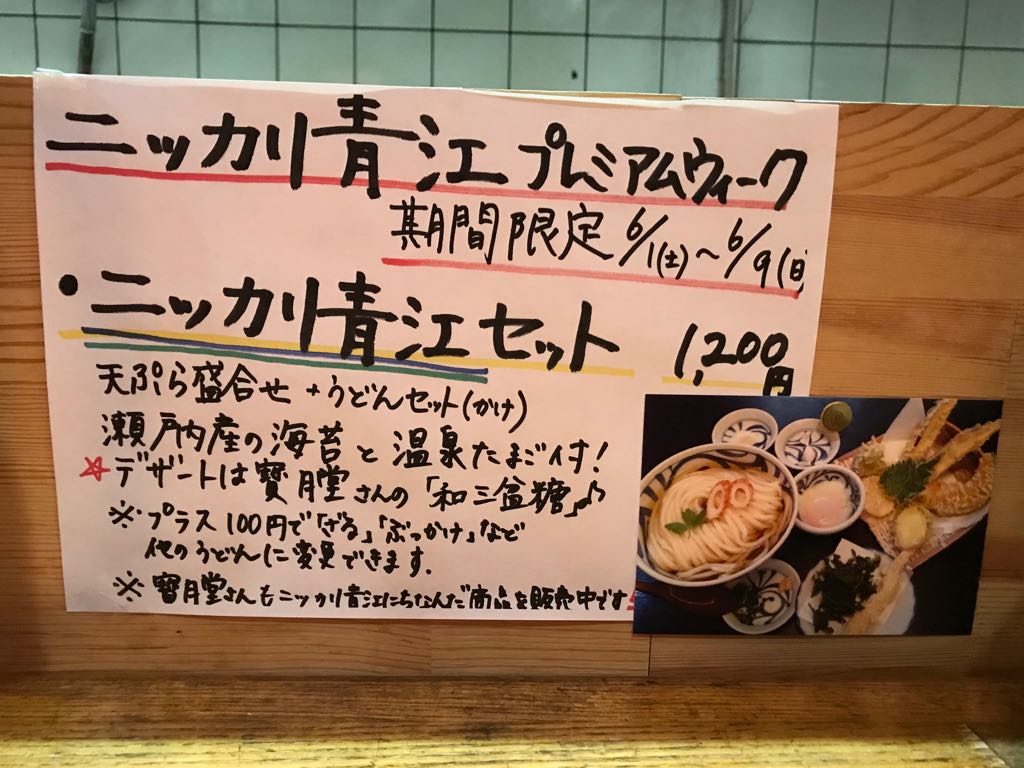 ニッカリ青江プレミアムウィーク
期間限定6/1(土)~6/9(日)
・ニッカリ青江セット 1,200円
天ぷら盛合せ+うどんセット(かけ)
瀬戸内産の海苔と温泉たまご付!
☆デザートは寶月堂さんの「和三盆糖」♪
※プラス100円で「ざる」「ぶっかけ」など
他のうどんに変更できます.
※寶月堂さんもニッカリ青江にちなんだ商品を販売中です